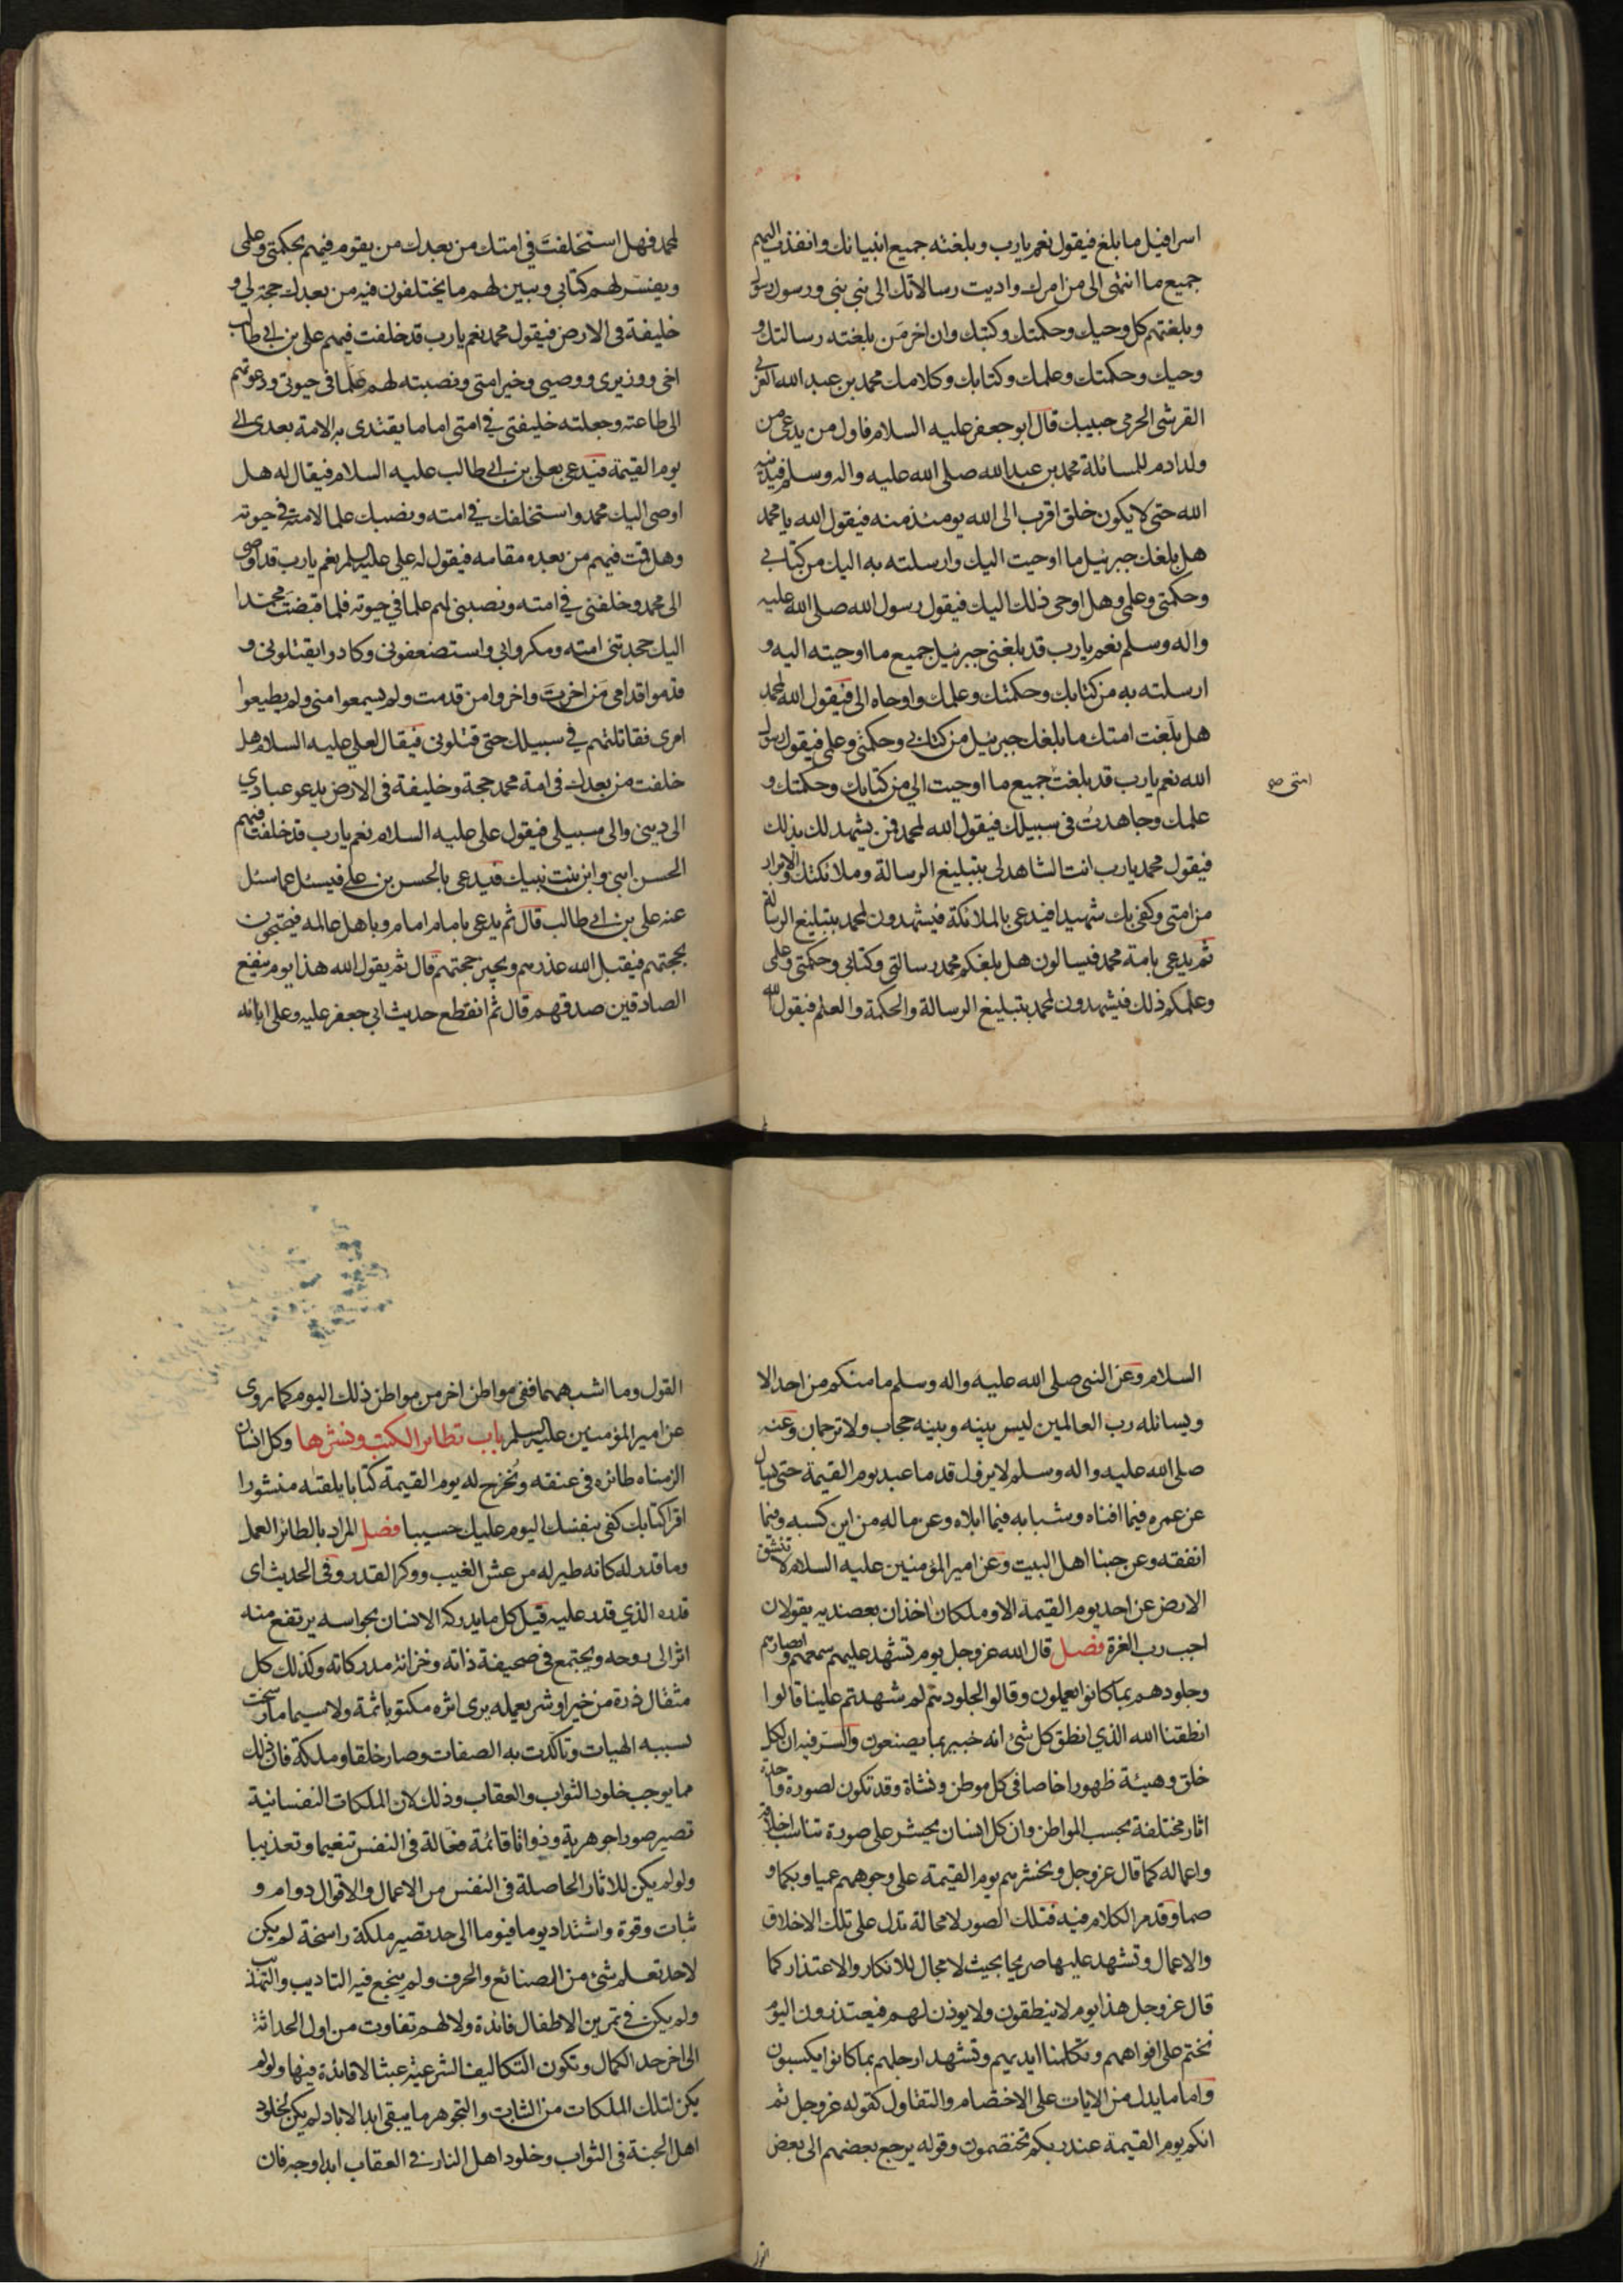 اسرافيل ما بلغ فيقول نعم يا رب وبلغته جميع انبيائك وانفذت اليهم
جميع ما انتهى الي من امرك واديت رسالاتك الى نبي نبي ورسول رسول
وبلغتهم كل وحيك وحكمتك وكتبك وان اخر من بلغته رسالتك و
وحيك وحكمتك وعلمك وكتابك وكلامك محمد بن عبد الله العربي
القرشي الحرمي حبيبك قال ابو جعفر عليه السلام فاول من يدعى من
ولد ادم للمسائلة محمد بن عبد الله صلى الله عليه واله وسلم فيدنيه
الله حتى لا يكون خلق اقرب الى الله يومئذ منه فيقول الله يا محمد
هل بلغك جبرئيل ما اوحيت اليك وارسلته به اليك من كتابي
وحكمتي وعلمي وهل اوحى ذلك اليك فيقول رسول الله صلى الله عليه
واله وسلم نعم يا رب قد بلغني جبرئيل جميع ما اوحيته اليه و
ارسلته به من كتابك وحكمتك وعلمك واوحاه الي فيقول الله لمحمد
هل بلغت امتك ما بلغك جبرئيل من كتابي وحكمتي وعلمي فيقول رسول
الله نعم يا رب قد بلغت جميع ما اوحيت الي من كتابك وحكمتك و
امتي صح
علمك وجاهدت في سبيلك فيقول الله لمحمد فمن يشهد لك بذلك
فيقول محمد يا رب انت الشاهد لي بتبليغ الرسالة وملائكتك والابرار
من امتي وكفى بك شهيدا فيدعى بالملائكة فيشهدون لمحمد بتبليغ الرسالة
ثم يدعى بامة محمد فيسالون هل بلغكم محمد رسالتي وكتابي وحكمتي وعلمي
وعلمكم ذلك فيشهدون لمحمد بتبليغ الرسالة والحكمة والعلم فيقول الله
لمحمد فهل استخلفت في امتك من بعدك من يقوم فيهم بحكمتي وعلمي
ويفسر لهم كتابي ويبين لهم ما يختلفون فيه من بعدك حجة لي و
خليفة في الارض فيقول محمد نعم يا رب قد خلفت فيهم علي بن ابي طالب
اخي ووزيري ووصيي وخير امتي ونصبته لهم علما في حيوتي ودعوتهم
الى طاعته وجعلته خليفتي في امتي اماما يقتدي به الامة بعدي الى
يوم القيمة فيدعى بعلي بن ابي طالب عليه السلام فيقال له هل
اوصى اليك محمد واستخلفك في امته ونصبك علما لامته في حيوته
وهل قمت فيهم من بعده مقامه فيقول له علي عليه السلم نعم يا رب قد اوصى
الي محمد وخلفني في امته ونصبني لهم علما في حيوته فلما قبضت محمدا
اليك جحدتني امته ومكروا بي واستضعفوني وكادوا يقتلوني و
قدموا قدامي من اخرت واخروا من قدمت ولم يسمعوا مني ولم يطيعوا
امري فقاتلتهم في سبيلك حتى قتلوني فيقال لعلي عليه السلام هل
خلفت من بعدك في امة محمد حجة وخليفة في الارض يدعو عبادي
الى ديني والى سبيلي فيقول علي عليه السلام نعم يا رب قد خلفت فيهم
الحسن ابني وابن بنت نبيك فيدعى بالحسن بن علي فيسئل عما سئل
عنه علي بن ابي طالب قال ثم يدعى بامام امام وباهل عالمه فيحتجون
بحجتهم فيقبل الله عذرهم ويجيز حجتهم قال ثم يقول الله هذا يوم ينفع
الصادقين صدقهم قال ثم انقطع حديث ابي جعفر عليه وعلى ابائه
السلام وعن النبي صلى الله عليه واله وسلم ما منكم من احد الا
ويسائله رب العالمين ليس بينه وبينه حجاب ولا ترجمان وعنه
صلى الله عليه واله وسلم لا يزول قدما عبد يوم القيمة حتى يسال
عن عمره فيما افناه وشبابه فيما ابلاه وعن ماله من اين كسبه وفيما
انفقه وعن حبنا اهل البيت وعن امير المؤمنين عليه السلام لا تنشق
الارض عن احد يوم القيمة الا وملكان اخذان بعضديه يقولان
اجب رب العزة فصل قال الله عز وجل يوم تشهد عليهم سمعهم وابصارهم
وجلودهم بما كانوا يعملون وقالوا لجلودهم لم شهدتم علينا قالوا
انطقنا الله الذي انطق كل شئ انه خبير بما يصنعون والسر فيه ان لكل
خلق وهيئة ظهورا خاصا في كل موطن ونشاة وقد تكون لصورة واحدة
اثار مختلفة بحسب المواطن وان كل انسان يحشر على صورة تناسب اخلاقه
واعماله كما قال عز وجل ونحشرهم يوم القيمة على وجوههم عميا وبكما و
صما وقد مر الكلام فيه فتلك الصور لا محالة تدل على تلك الاخلاق
والاعمال وتشهد عليها صريحا بحيث لا مجال للانكار والاعتذار كما
قال عز وجل هذا يوم لا ينطقون ولا يوذن لهم فيعتذرون اليوم
نختم على افواههم وتكلمنا ايديهم وتشهد ارجلهم بما كانوا يكسبون
واما ما يدل من الايات على الاختصام والتقاول كقوله عز وجل ثم
انكم يوم القيمة عند ربكم تختصمون وقوله يرجع بعضهم الى بعض
القول
القول وما اشبههما ففي مواطن اخر من مواطن ذلك اليوم كما روي
عن امير المؤمنين عليه السلم باب تطاير الكتب ونشرها وكل انسان
الزمناه طائره في عنقه ونخرج له يوم القيمة كتابا يلقيه منشورا
اقرا كتابك كفى بنفسك اليوم عليك حسيبا فصل المراد بالطائر العمل
وما قدر له كانه طير له من عش الغيب ووكر القدر وفي الحديث اي
قدره الذي قدر عليه قيل كل ما يدركه الانسان بحواسه يرتفع منه
اثر الى روحه ويجتمع في صحيفة ذاته وخزانة مدركاته وكذلك كل
مثقال ذرة من خير او شر يعمله يرى اثره مكتوبا ثمة ولا سيما ما رسخت
بسببه الهيات وتاكدت به الصفات وصار خلقا وملكة فان ذلك
مما يوجب خلود الثواب والعقاب وذلك لان الملكات النفسانية
تصير صورا جوهرية وذواتا قائمة فعالة في النفس تنعيما وتعذيبا
ولو لم يكن للاثار الحاصلة في النفس من الاعمال والاقوال دوام و
ثبات وقوة واشتداد يوما فيوما الى حد تصير ملكة راسخة لم يكن
لاحد تعلم شئ من الصنائع والحرف ولم ينجع فيه التاديب والتهذيب
ولم يكن في تمرين الاطفال فائدة ولا لهم تفاوت من اول الحداثة
الى اخر حد الكمال وتكون التكاليف الشرعية عبثا لا فائدة فيها ولو لم
يكن لتلك الملكات من الثبات والتجوهر ما يبقى ابد الاباد لم يكن لخلود
اهل الجنة في الثواب وخلود اهل النار في العقاب ابدا وجه فان